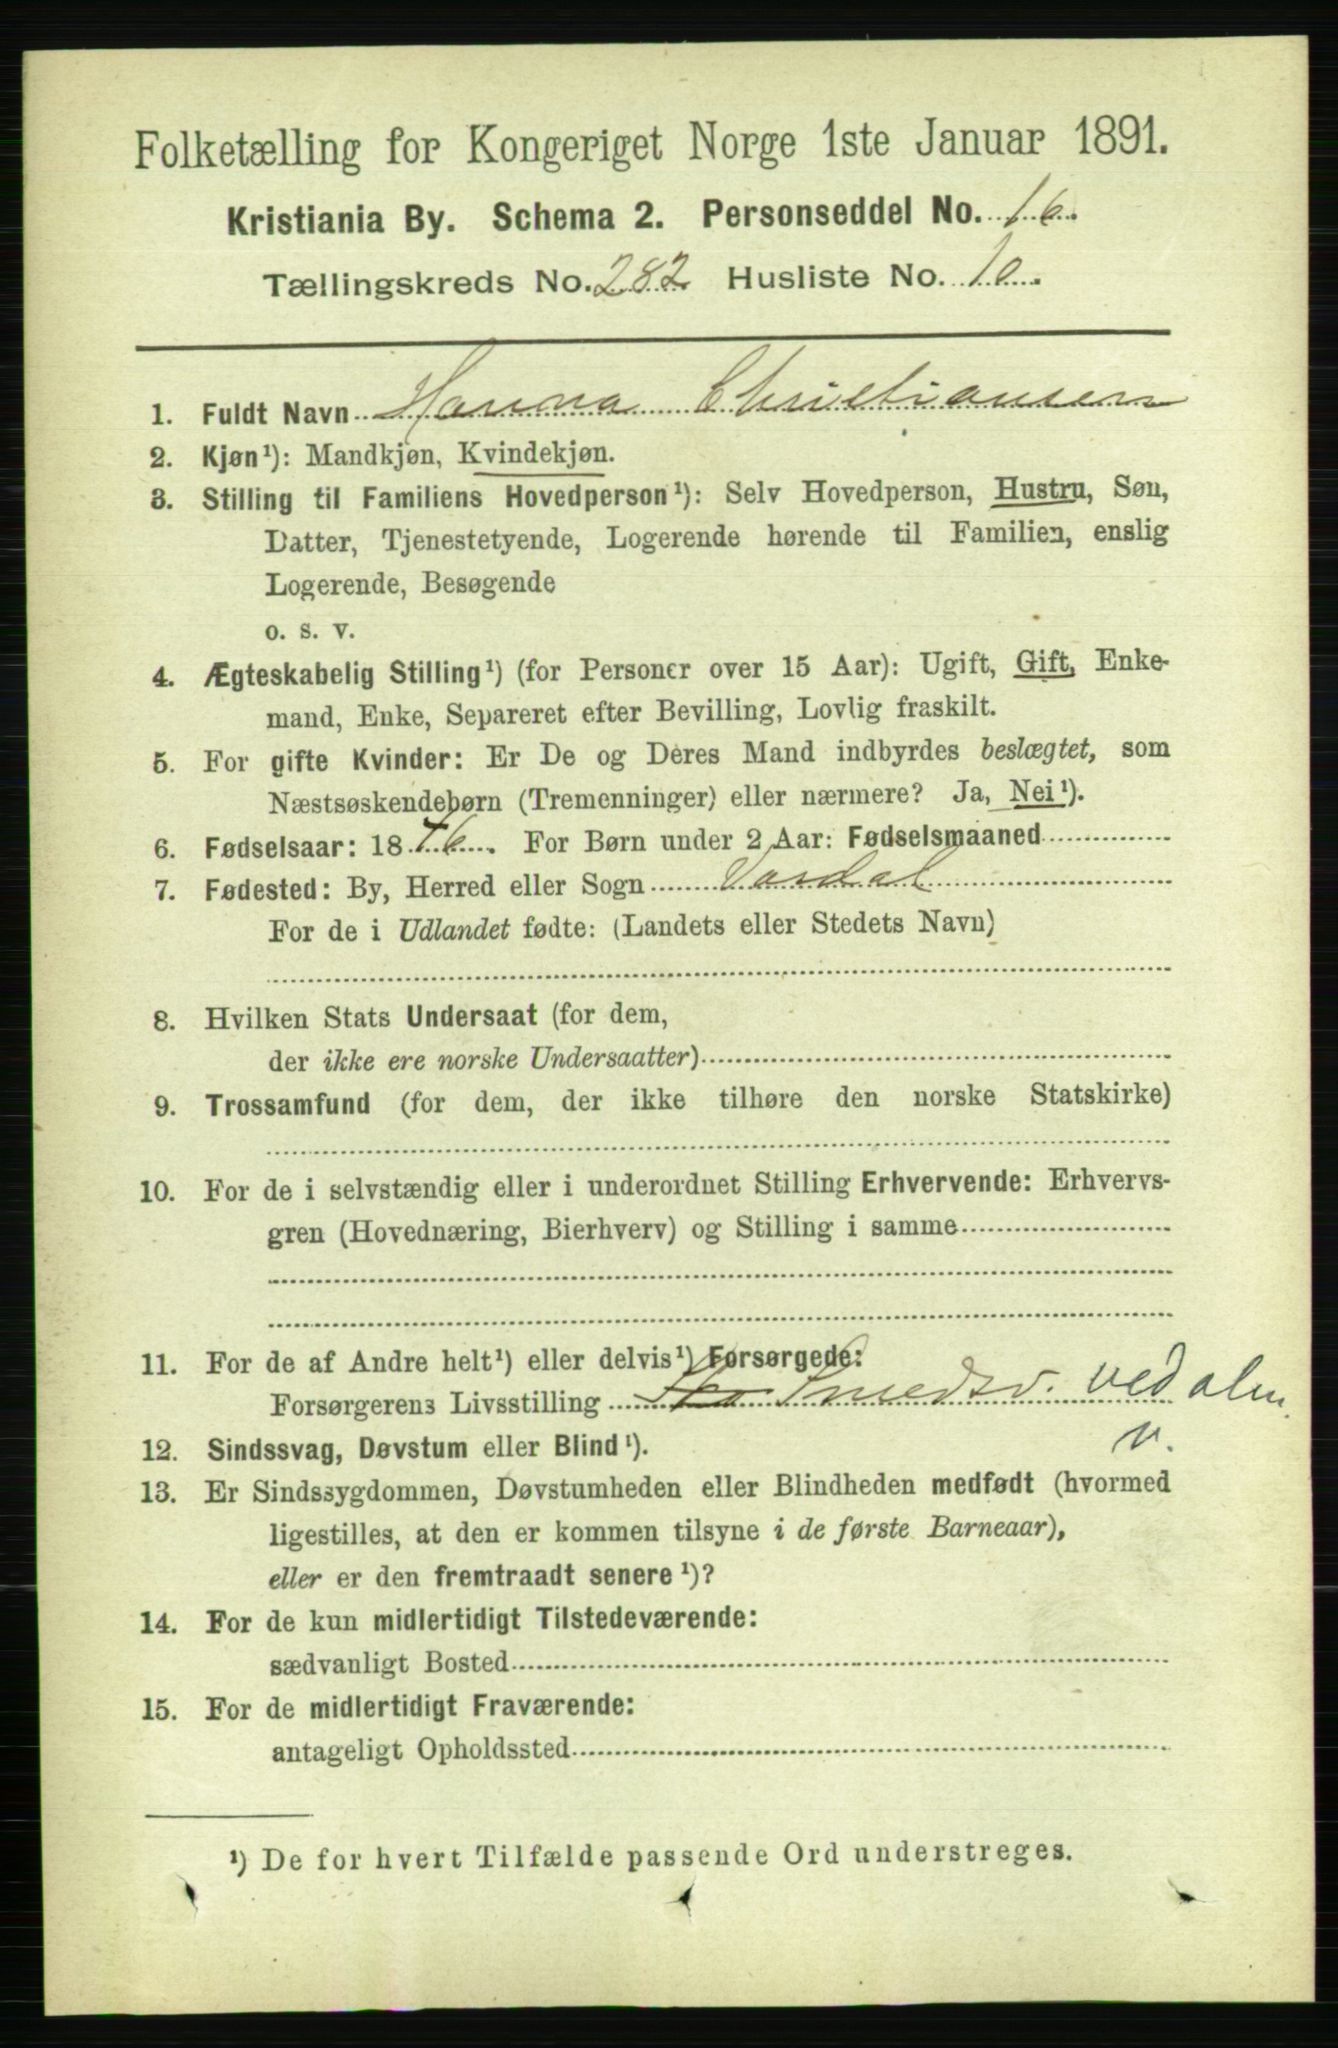 Folketælling for Kongeriget Norge 1ste Januar 1891.
Kristiania By. Schema 2. Personseddel No. 16.
Tællingskreds No. 282 Husliste No. 10.
1. Fuldt Navn Hanna Christiansen
2. Kjøn¹): Mandkjøn, Kvindekjøn.
3. Stilling til Familiens Hovedperson¹): Selv Hovedperson, Hustru, Søn,
Datter, Tjenestetyende, Logerende hørende til Familien, enslig
Logerende, Besøgende
o. s. v.
4. Ægteskabelig Stilling¹) (for Personer over 15 Aar): Ugift, Gift, Enke-
mand, Enke, Separeret efter Bevilling, Lovlig fraskilt.
5. For gifte Kvinder: Er De og Deres Mand indbyrdes beslægtet, som
Næstsøskendebørn (Tremenninger) eller nærmere? Ja, Nei¹).
6. Fødselsaar: 1846. For Børn under 2 Aar: Fødselsmaaned
7. Fødested: By, Herred eller Sogn Vardal
For de i Udlandet fødte: (Landets eller Stedets Navn)
8. Hvilken Stats Undersaat (for dem,
der ikke ere norske Undersaatter)
9. Trossamfund (for dem, der ikke tilhøre den norske Statskirke)
10. For de i selvstændig eller i underordnet Stilling Erhvervende: Erhvervs-
gren (Hovednæring, Bierhverv) og Stilling i samme
11. For de af Andre helt¹) eller delvis¹) Forsørgede:
Forsørgerens Livsstilling Smedsv. ved
12. Sindssvag, Døvstum eller Blind¹).
13. Er Sindssygdommen, Døvstumheden eller Blindheden medfødt (hvormed
ligestilles, at den er kommen tilsyne i de første Barneaar),
eller er den fremtraadt senere¹)?
14. For de kun midlertidigt Tilstedeværende:
sædvanligt Bosted
15. For de midlertidigt Fraværende:
antageligt Opholdssted
¹) De for hvert Tilfælde passende Ord understreges.